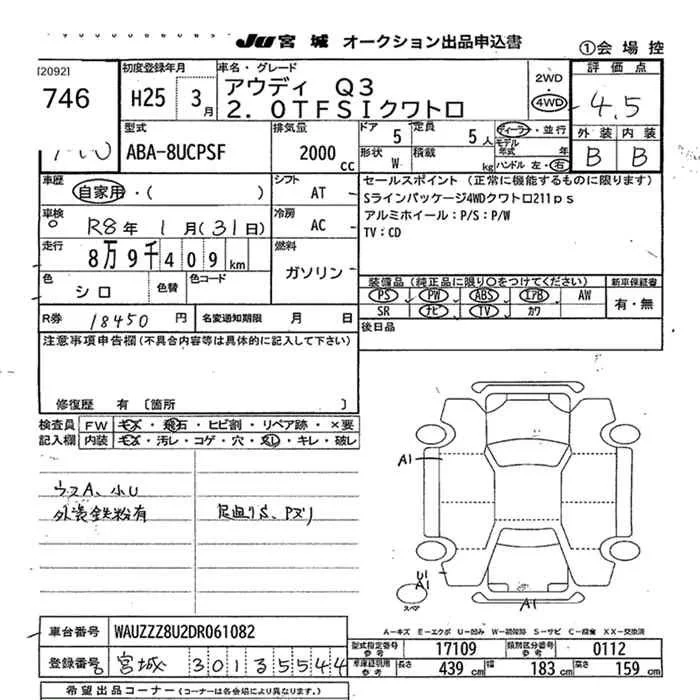 JU 宮城 オークション出品申込書
①会場控
[2092]
746
初度登録年月
H25 3月
車名・グレード
アウディ Q3
2.0TFSIクワトロ
2WD
・
4WD
評価点
4.5
外装 内装
B B
型式
ABA-8UCPSF
排気量
2000cc
ドア 5 定員 5人
形状 W 積載 kg
ディーラー・並行
モデル年式 年
ハンドル 左・右
車歴 自家用・( )
シフト AT
車検 R8年 1月(31日)
冷房 AC
走行 8万9千409km
燃料 ガソリン
色 シロ 色替 色コード
セールスポイント(正常に機能するものに限ります)
Sラインパッケージ4WDクワトロ211ps
アルミホイール:P/S:P/W
TV:CD
装備品(純正品に限り○をつけてください) 新車保証書
PS PW ABS エアB AW
SR ナビ TV カワ
有・無
R券 18450円 名変通知期限 月 日
後日品
注意事項申告欄(不具合内容等は具体的に記入して下さい)
修復歴 有〔箇所 〕
検査員記入欄
FW キズ・飛石・ヒビ割・リペア跡・×要
内装 キズ・汚レ・コゲ・穴・スレ・キレ・破レ
ウスA、小U
外装鉄粉有
足廻りS、Pズリ
A1
U1
A1
A1
スペア
A-キズ E-エクボ U-凹み W-補修跡 S-サビ C-腐食 XX-交換済
車台番号 WAUZZZ8U2DR061082
登録番号 宮城 3013 5544
型式指定番号 参考 17109 類別区分番号 参考 0112
車庫証明用 参考 長さ 439cm 幅 183cm 高さ 159cm
希望出品コーナー(コーナーは各会場により異なります。)